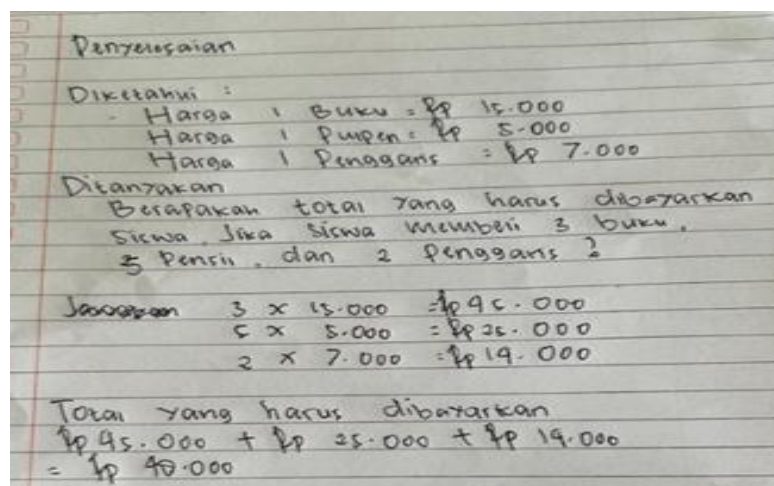 Penyelesaian
Diketahui :
- Harga 1 Buku = Rp 15.000
Harga 1 Pulpen = Rp 5.000
Harga 1 Penggaris = Rp 7.000
Ditanyakan
Berapakah total yang harus dibayarkan
siswa, Jika siswa membeli 3 buku,
5 Pensil, dan 2 Penggaris ?
Jawaban 3 x 15.000 = Rp 45.000
5 x 5.000 = Rp 25.000
2 x 7.000 = Rp 14.000
Total yang harus dibayarkan
Rp 45.000 + Rp 25.000 + Rp 14.000
= Rp 40.000